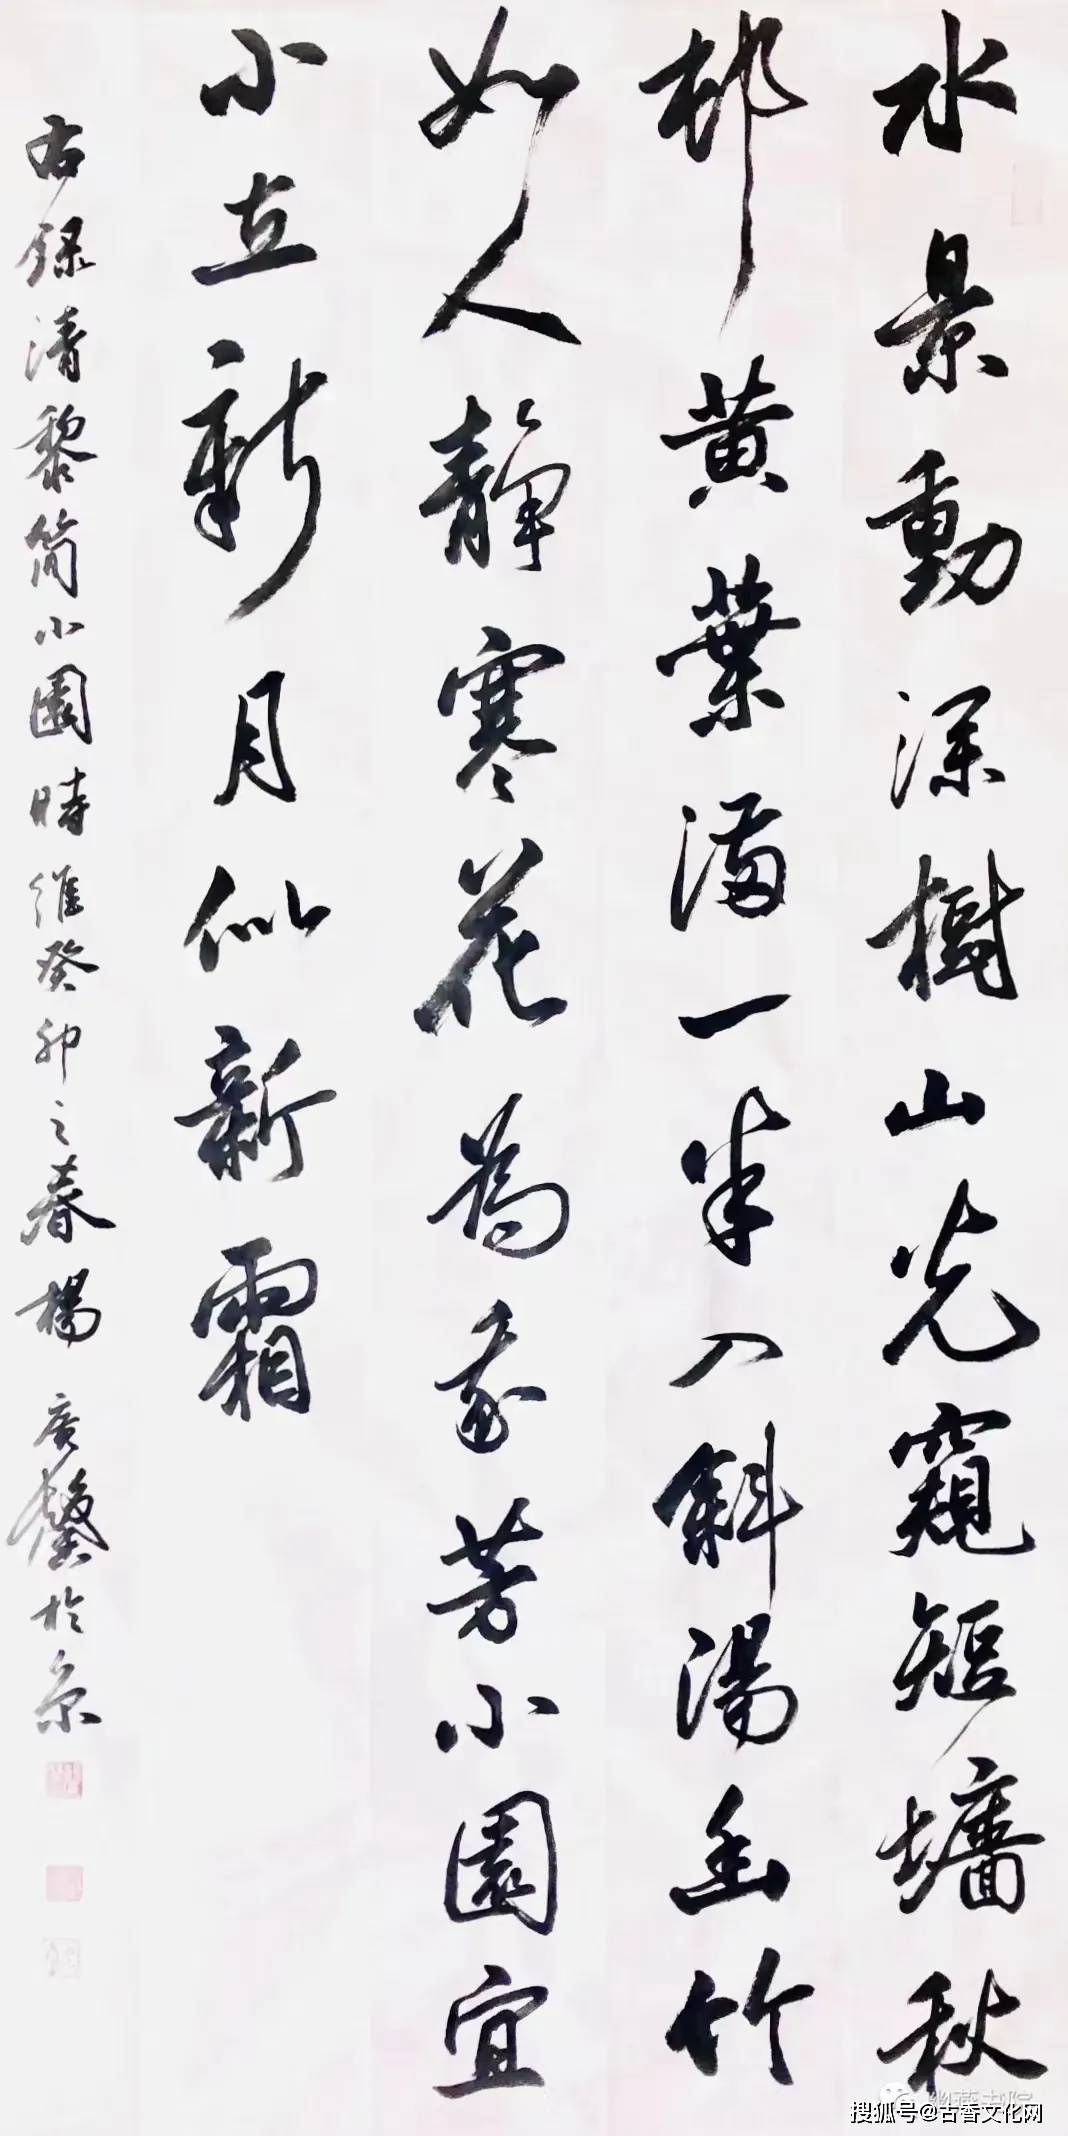 水景動深樹山光窺短墻秋
邨黃葉滿一半入斜陽幽竹
如人靜寒花為我芳小園宜
小立新月似新霜
右錄清黎簡小園時維癸卯之春楊廣馨於京
幽燕书院
搜狐号@古香文化网